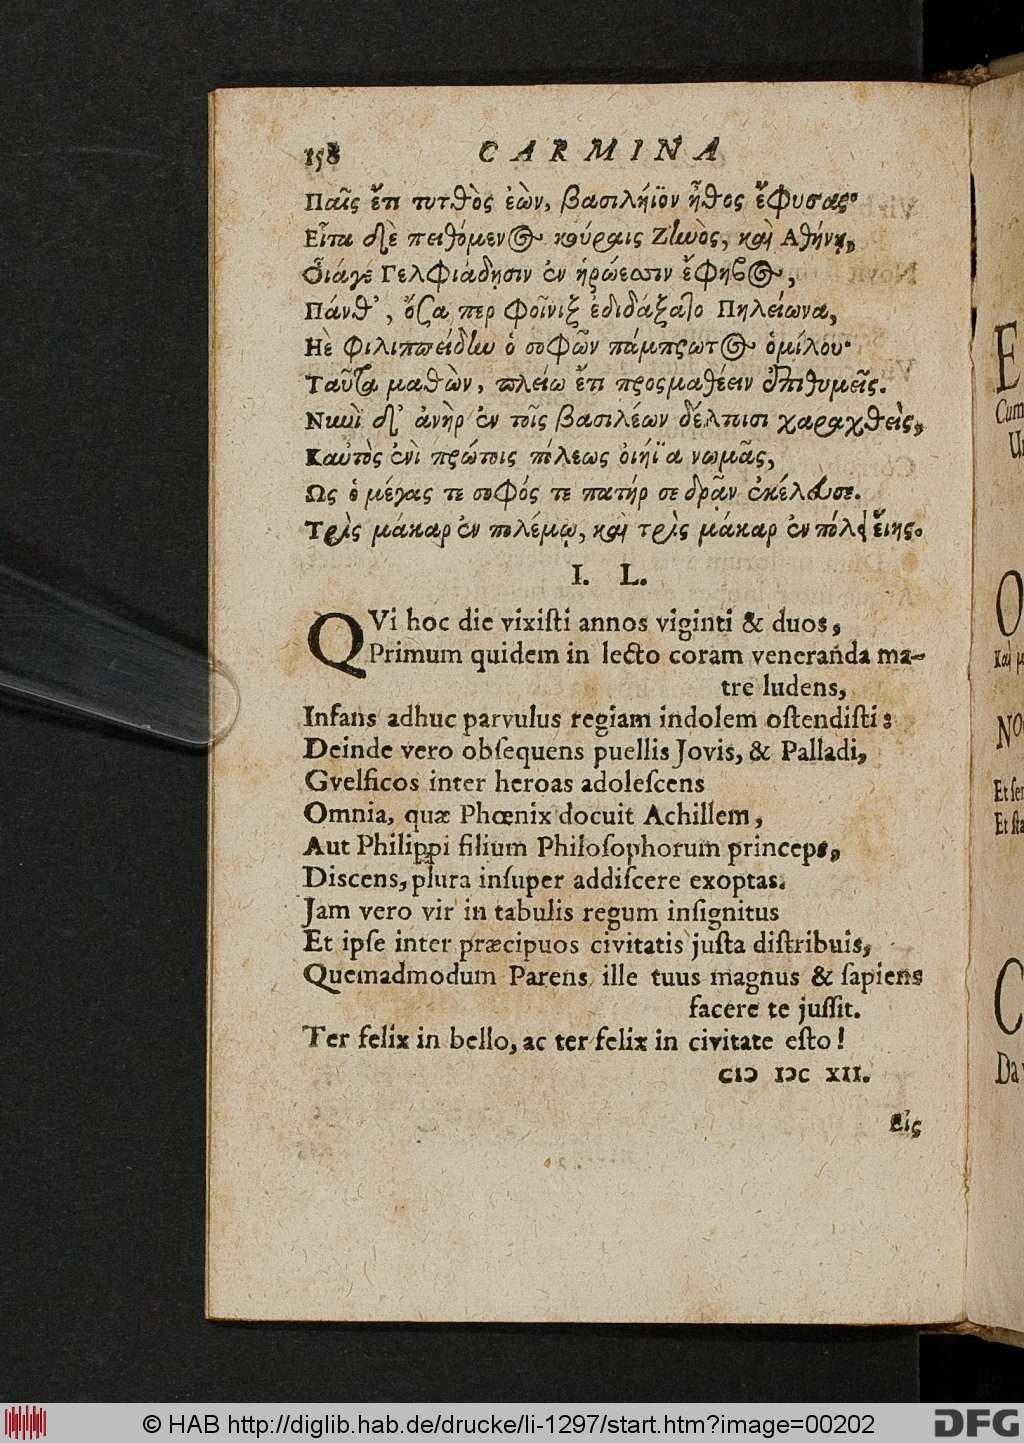 158 CARMINA
Παῖς ἔτι τυτθὸς ἐὼν, βασιλήϊον ἦθος ἔφυσας·
Εἶτα δὲ πειθόμενος κούραις Ζηνὸς, καὶ Ἀθήνῃ,
Οἷάγε Γελφιάδῃσιν ἐν ἡρώεσσιν ἔφηβος,
Πάνθ', ὅσα περ Φοῖνιξ ἐδιδάξατο Πηλείωνα,
Ηὲ Φιλιππείδην ὁ σοφῶν πάμπρωτος ὁμίλου·
Ταῦτα μαθὼν, πλείω ἔτι προςμαθέειν ἐπιθυμεῖς.
Νυνὶ δ' ἀνὴρ ἐν τοῖς βασιλέων δέλτοισι χαραχθεὶς,
Καὐτὸς ἐνὶ πρώτοις πόλεως οἰήϊα νωμᾶς,
Ως ὁ μέγας τε σοφός τε πατήρ σε δρᾷν ἐκέλευσε.
Τρὶς μάκαρ ἐν πολέμῳ, καὶ τρὶς μάκαρ ἐν πόλει εἴης.
I. L.
QVi hoc die vixiſti annos viginti & duos,
Primum quidem in lecto coram veneranda ma-
tre ludens,
Infans adhuc parvulus regiam indolem oſtendiſti:
Deinde vero obſequens puellis Jovis, & Palladi,
Gvelficos inter heroas adoleſcens
Omnia, quæ Phœnix docuit Achillem,
Aut Philippi filium Philoſophorum princeps,
Diſcens, plura inſuper addiſcere exoptas.
Jam vero vir in tabulis regum inſignitus
Et ipſe inter præcipuos civitatis juſta diſtribuis,
Quemadmodum Parens ille tuus magnus & ſapiens
facere te juſſit.
Ter felix in bello, ac ter felix in civitate eſto!
CIↃ IↃC XII.
Εἰς
© HAB http://diglib.hab.de/drucke/li-1297/start.htm?image=00202
DFG